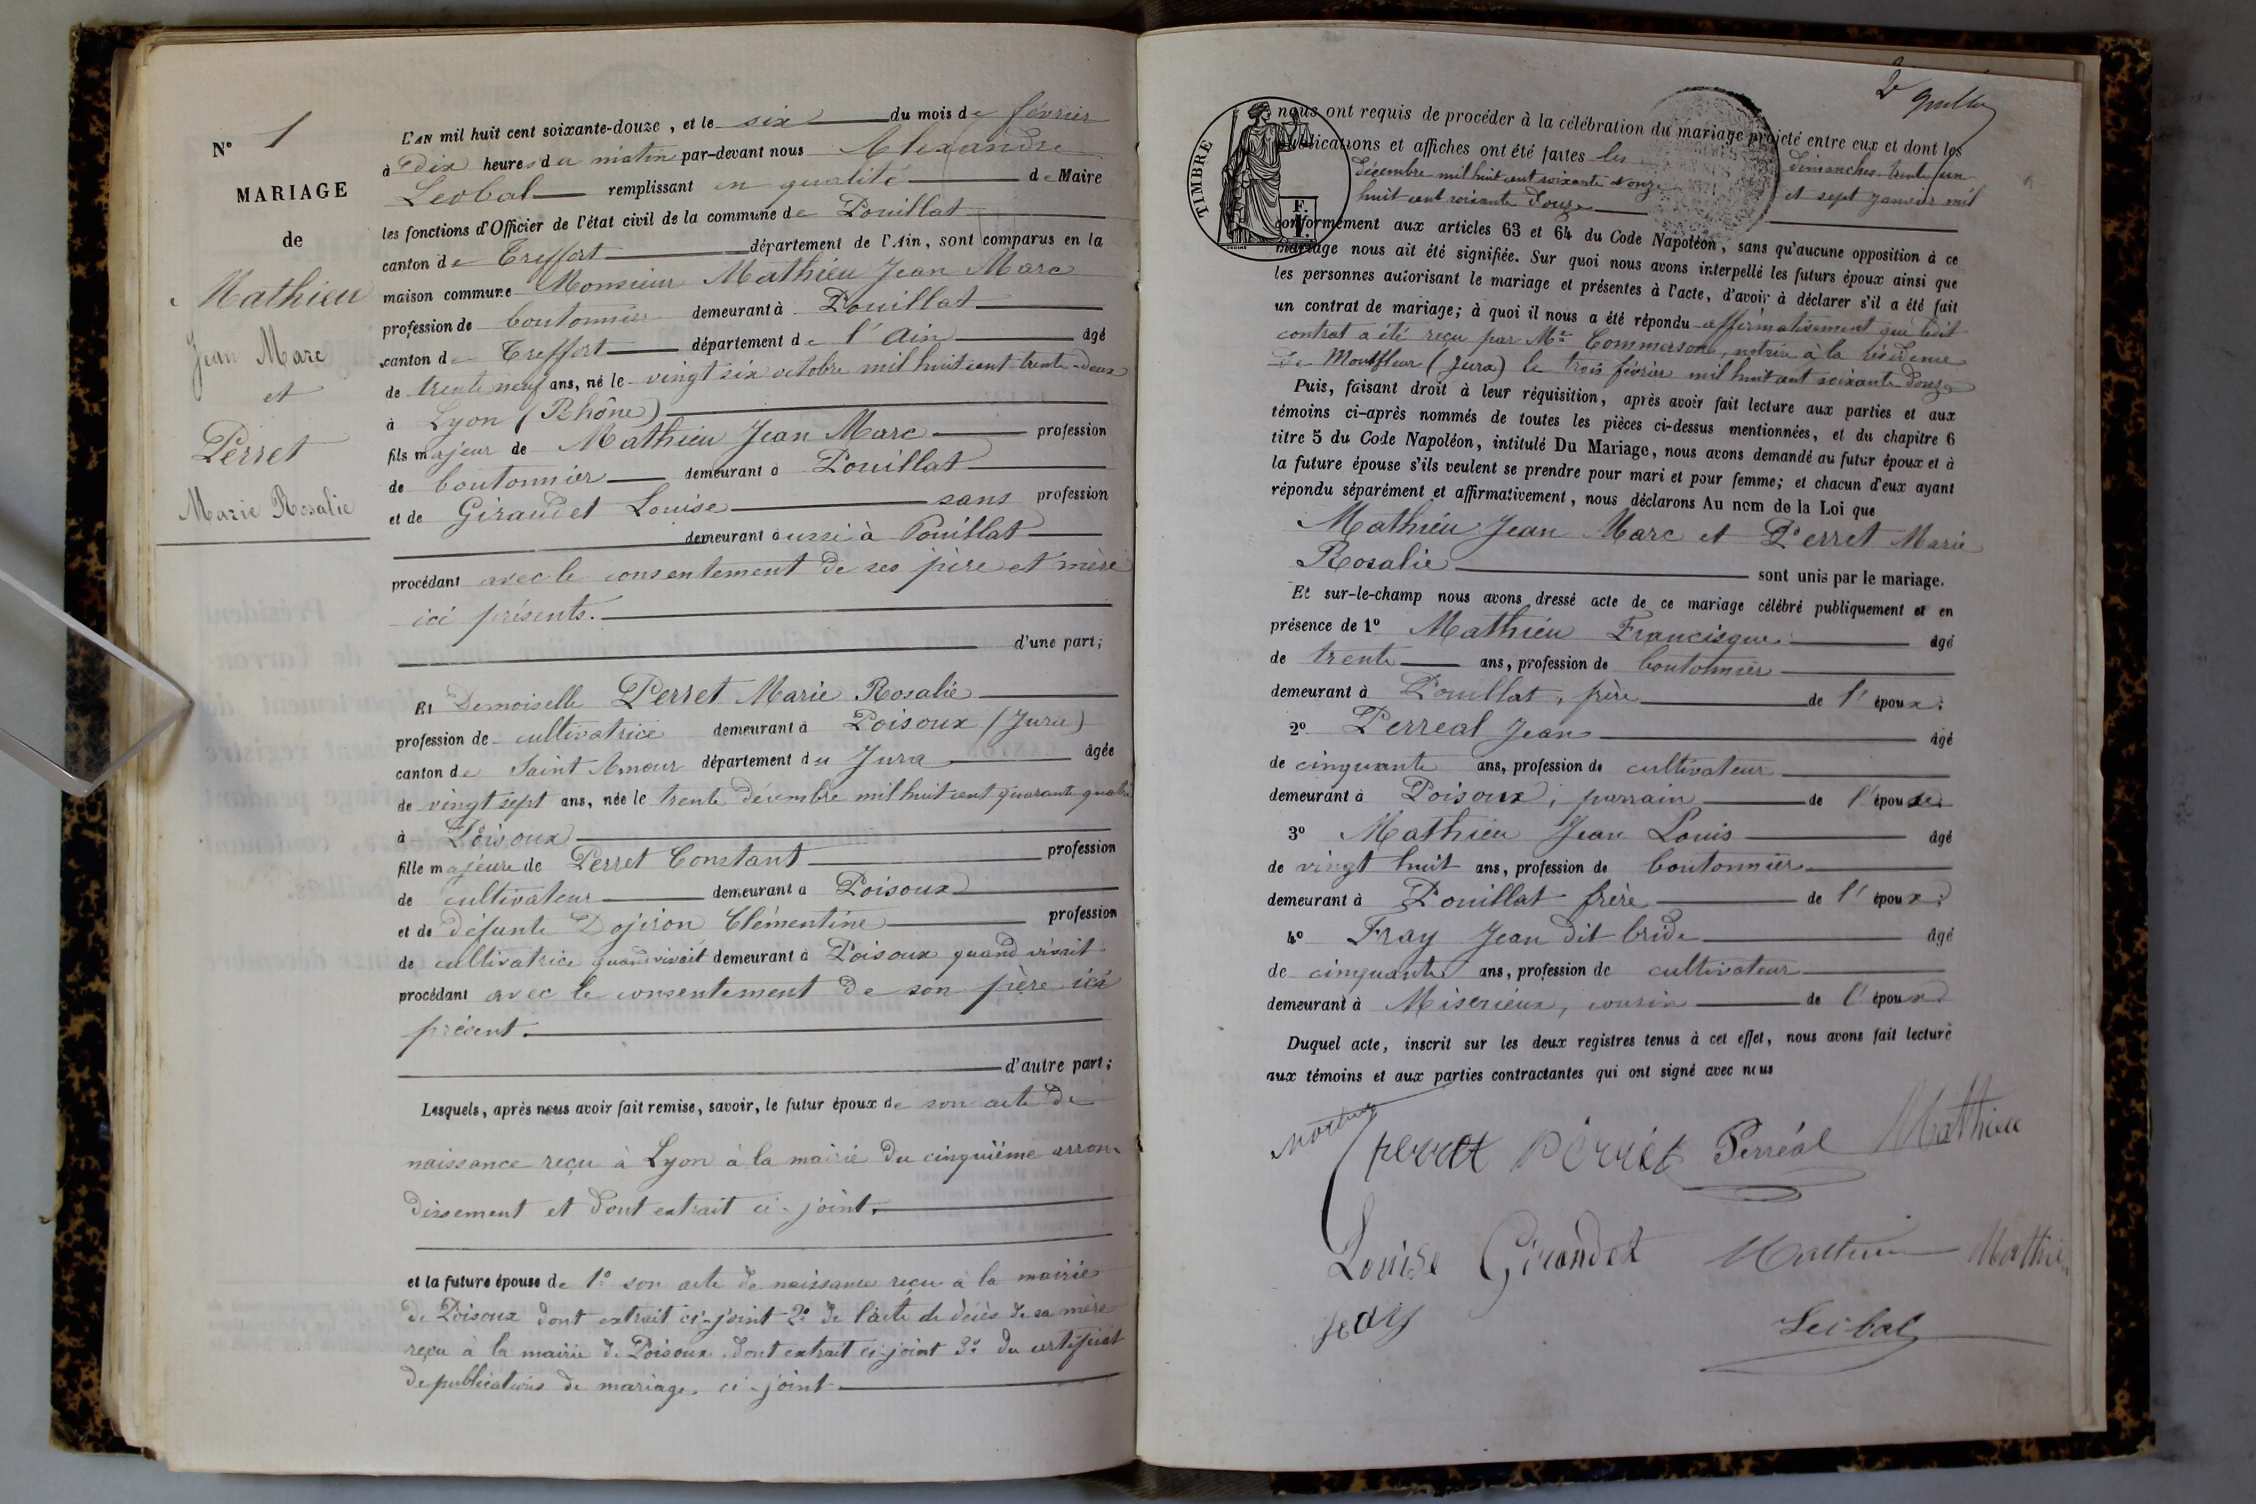 N° 1
MARIAGE
de
Mathieu
Jean Marc
et
Perret
Marie Rosalie
L'AN mil huit cent soixante-douze, et le six du mois de février
à dix heures du matin par-devant nous Alexandre
Leobal remplissant en qualité de Maire
les fonctions d'Officier de l'état civil de la commune de Pouillat
canton de Treffort département de l'Ain, sont comparus en la
maison commune Monsieur Mathieu Jean Marc
profession de boutonnier demeurant à Pouillat
canton de Treffort département de l'Ain âgé
de trente neuf ans, né le vingt six octobre mil huit cent trente-deux
à Lyon (Rhône)
fils majeur de Mathieu Jean Marc profession
de boutonnier demeurant à Pouillat
et de Giraudet Louise sans profession
demeurant aussi à Pouillat
procédant avec le consentement de ses père et mère
ici présents.
d'une part;
Et Demoiselle Perret Marie Rosalie
profession de cultivatrice demeurant à Poisoux (Jura)
canton de Saint Amour département du Jura âgée
de vingt sept ans, née le trente décembre mil huit cent quarante quatre
à Poisoux
fille majeure de Perret Constant profession
de cultivateur demeurant à Poisoux
et de défunte Clémentine profession
de cultivatrice quand vivait demeurant à Poisoux quand vivait
procédant avec le consentement de son père ici
présent.
d'autre part;
Lesquels, après nous avoir fait remise, savoir, le futur époux de son acte de
naissance reçu à Lyon à la mairie du cinquième arron-
dissement et dont extrait ci-joint.
et la future épouse de 1° son acte de naissance reçu à la mairie
de Poisoux dont extrait ci-joint 2° de l'acte de décès de sa mère
reçu à la mairie de Poisoux dont extrait ci-joint 3° du certificat
de publications de mariage ci-joint
TIMBRE
F.
nous ont requis de procéder à la célébration du mariage projeté entre eux et dont les
publications et affiches ont été faites les dimanches trente un
décembre mil huit cent soixante et onze et sept janvier mil
huit cent soixante douze
conformément aux articles 63 et 64 du Code Napoléon, sans qu'aucune opposition à ce
mariage nous ait été signifiée. Sur quoi nous avons interpellé les futurs époux ainsi que
les personnes autorisant le mariage et présentes à l'acte, d'avoir à déclarer s'il a été fait
un contrat de mariage; à quoi il nous a été répondu affirmativement que ledit
contrat a été reçu par Me Commerson, notaire à la résidence
de Montfleur (Jura) le trois février mil huit cent soixante douze
Puis, faisant droit à leur réquisition, après avoir fait lecture aux parties et aux
témoins ci-après nommés de toutes les pièces ci-dessus mentionnées, et du chapitre 6
titre 5 du Code Napoléon, intitulé Du Mariage, nous avons demandé au futur époux et à
la future épouse s'ils veulent se prendre pour mari et pour femme; et chacun d'eux ayant
répondu séparément et affirmativement, nous déclarons Au nom de la Loi que
Mathieu Jean Marc et Perret Marie
Rosalie sont unis par le mariage.
Et sur-le-champ nous avons dressé acte de ce mariage célébré publiquement et en
présence de 1° Mathieu Francisque âgé
de trente ans, profession de boutonnier
demeurant à Pouillat, frère de l'époux;
2° Perreal Jean âgé
de cinquante ans, profession de cultivateur
demeurant à Poisoux, parrain de l'épouse;
3° Mathieu Jean Louis âgé
de vingt huit ans, profession de boutonnier
demeurant à Pouillat frère de l'époux;
4° Fray Jean dit bride âgé
de cinquante ans, profession de cultivateur
demeurant à Miserieux, cousin de l'époux
Duquel acte, inscrit sur les deux registres tenus à cet effet, nous avons fait lecture
aux témoins et aux parties contractantes qui ont signé avec nous
perret perret Perréal Mathieu
Louise Giraudet Mathieu Mathieu
Leobal